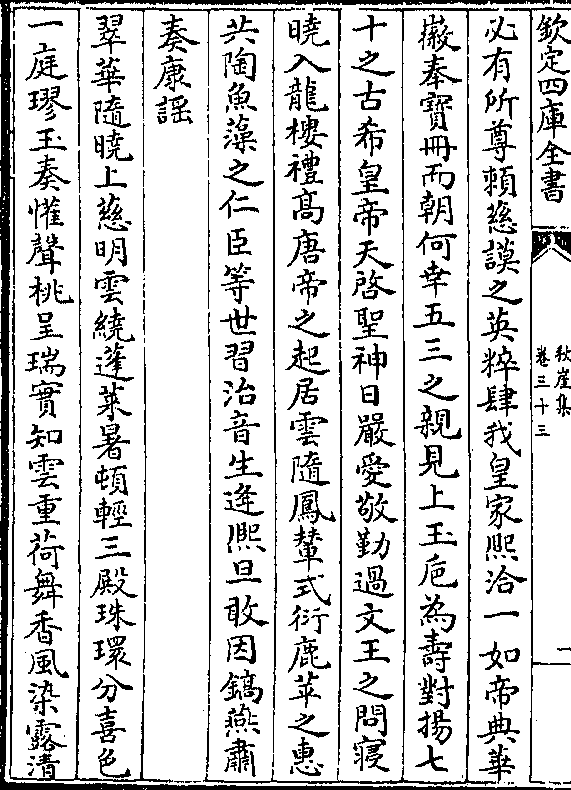 欽定四庫全書
秋崖集
卷三十三
必有所尊賴慈謨之英粹肆我皇家熙洽一如帝典華
嶽奉寶冊而朝何幸五三之親見上玉卮為壽對揚七
十之古希皇帝天啓聖神日嚴愛敬勤過文王之問寢
曉入龍樓禮髙唐帝之起居雲隨鳳輦式衍鹿苹之惠
共陶魚藻之仁臣等世習治音生逢熙旦敢因鎬燕肅
奏康謡
翠華隨曉上慈明雲繞蓬萊暑頓輕三殿珠環分喜色
一庭璆玉奏懽聲桃呈瑞實知雲重荷舞香風染露清